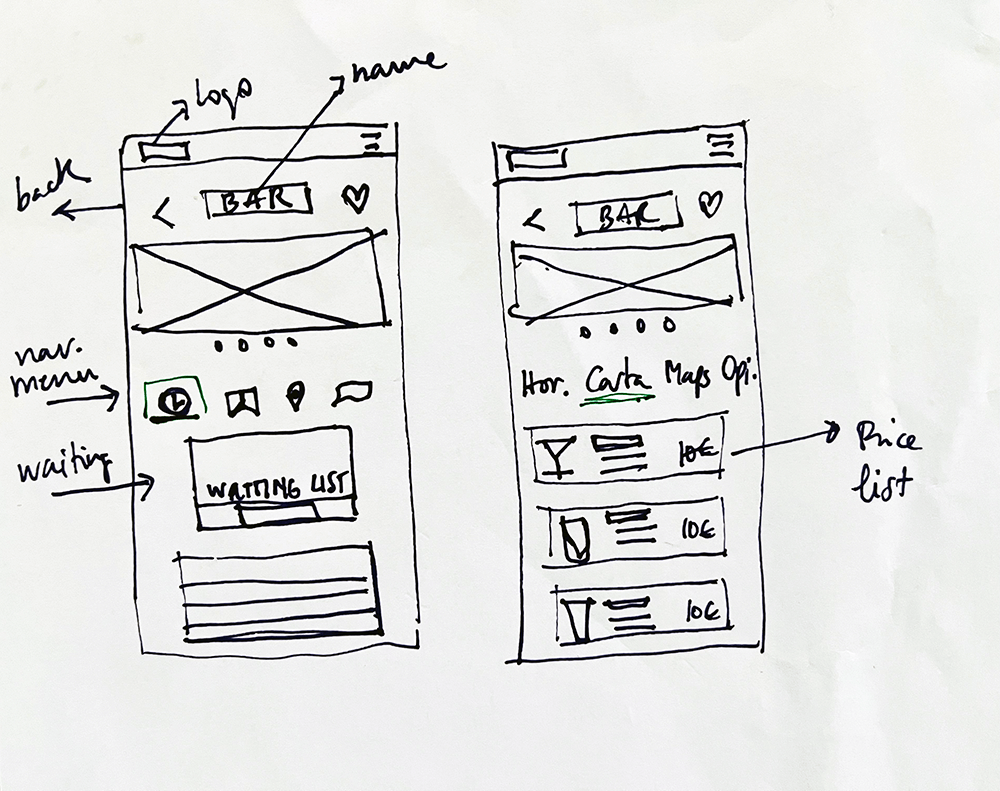 name
logo
back
BAR
nav.
menu
waiting
WAITING LIST
BAR
Hor. Carta Maps Opi.
10€
10€
10€
Price
list